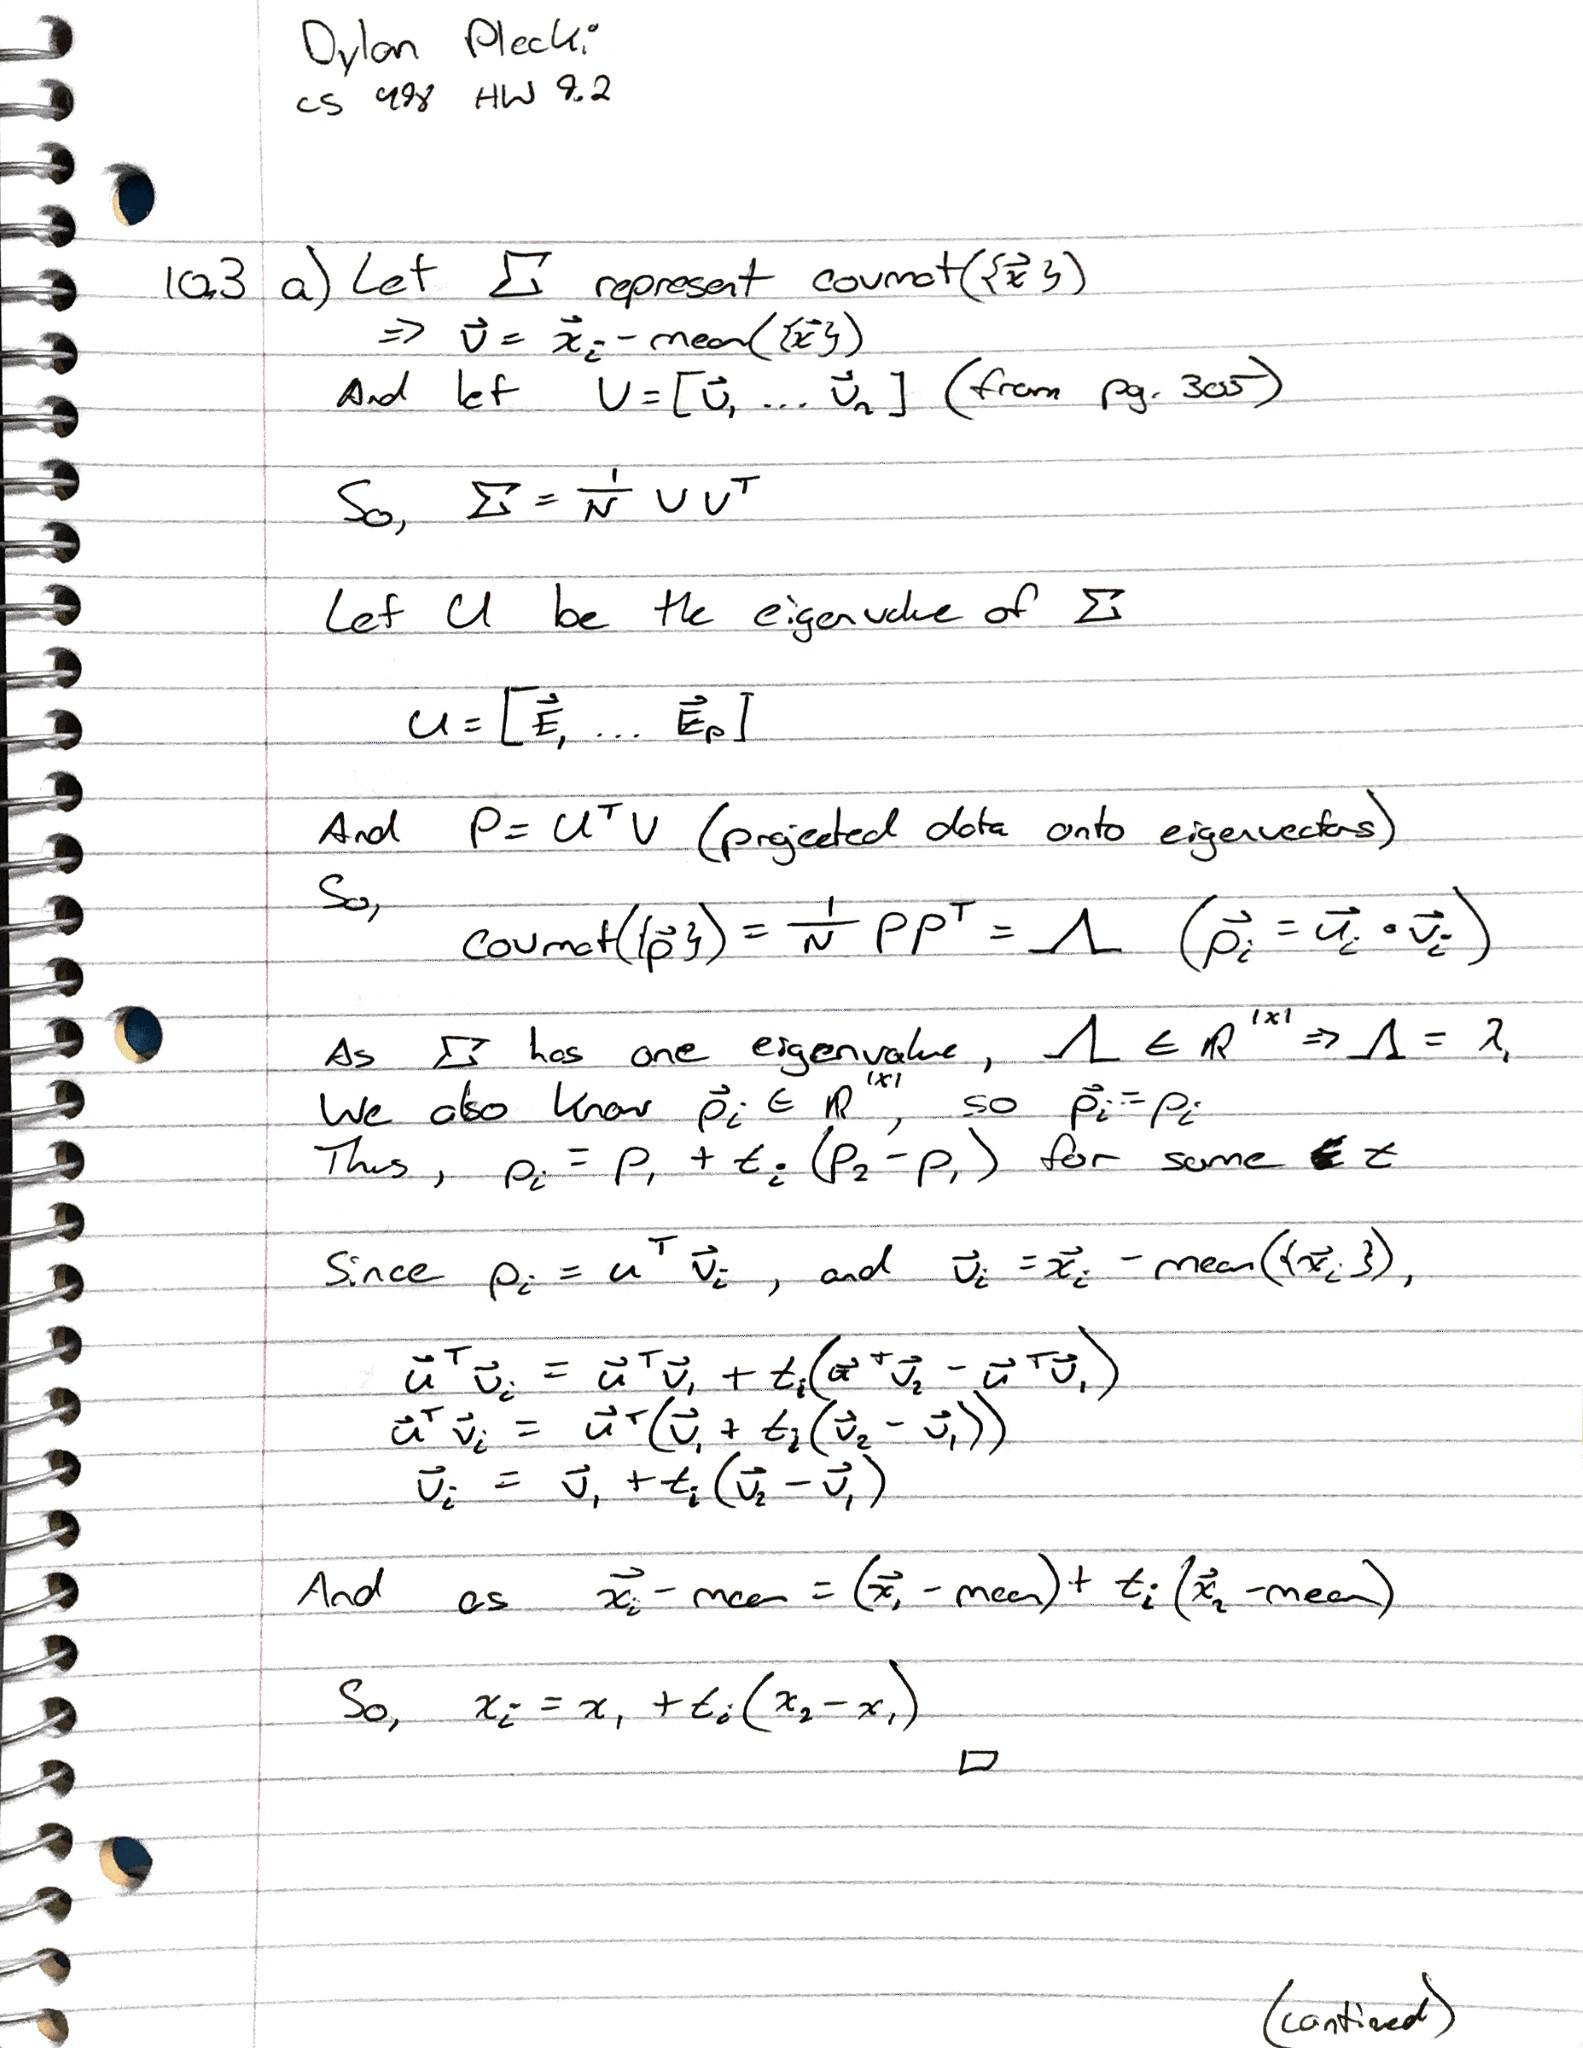 Dylan Plecki
CS 498 HW 9.2
10.3 a) Let Σ represent covmat({x⃗})
⇒ v⃗ = x⃗ᵢ - mean({x⃗})
And let V = [v⃗₁ ... v⃗ₙ] (from pg. 305)
So, Σ = 1/N V Vᵀ
Let U be the eigenvalue of Σ
U = [E⃗₁ ... E⃗ₚ]
And P = UᵀV (projected data onto eigenvectors)
So,
covmat({p⃗}) = 1/N PPᵀ = Λ (p⃗ᵢ = u⃗ᵢ • v⃗ᵢ)
As Σ has one eigenvalue, Λ ∈ ℝ¹ˣ¹ ⇒ Λ = λ₁
We also know p⃗ᵢ ∈ ℝ¹ˣ¹, so p⃗ᵢ = pᵢ
Thus, pᵢ = p₁ + tᵢ (p₂ - p₁) for some t
Since pᵢ = uᵀ v⃗ᵢ, and v⃗ᵢ = x⃗ᵢ - mean({x⃗ᵢ}),
u⃗ᵀv⃗ᵢ = u⃗ᵀv⃗₁ + tᵢ(u⃗ᵀv⃗₂ - u⃗ᵀv⃗₁)
u⃗ᵀv⃗ᵢ = u⃗ᵀ(v⃗₁ + tᵢ(v⃗₂ - v⃗₁))
v⃗ᵢ = v⃗₁ + tᵢ(v⃗₂ - v⃗₁)
And as x⃗ᵢ - mean = (x⃗₁ - mean) + tᵢ (x⃗₂ - mean)
So, xᵢ = x₁ + tᵢ(x₂ - x₁)
□
(contined)